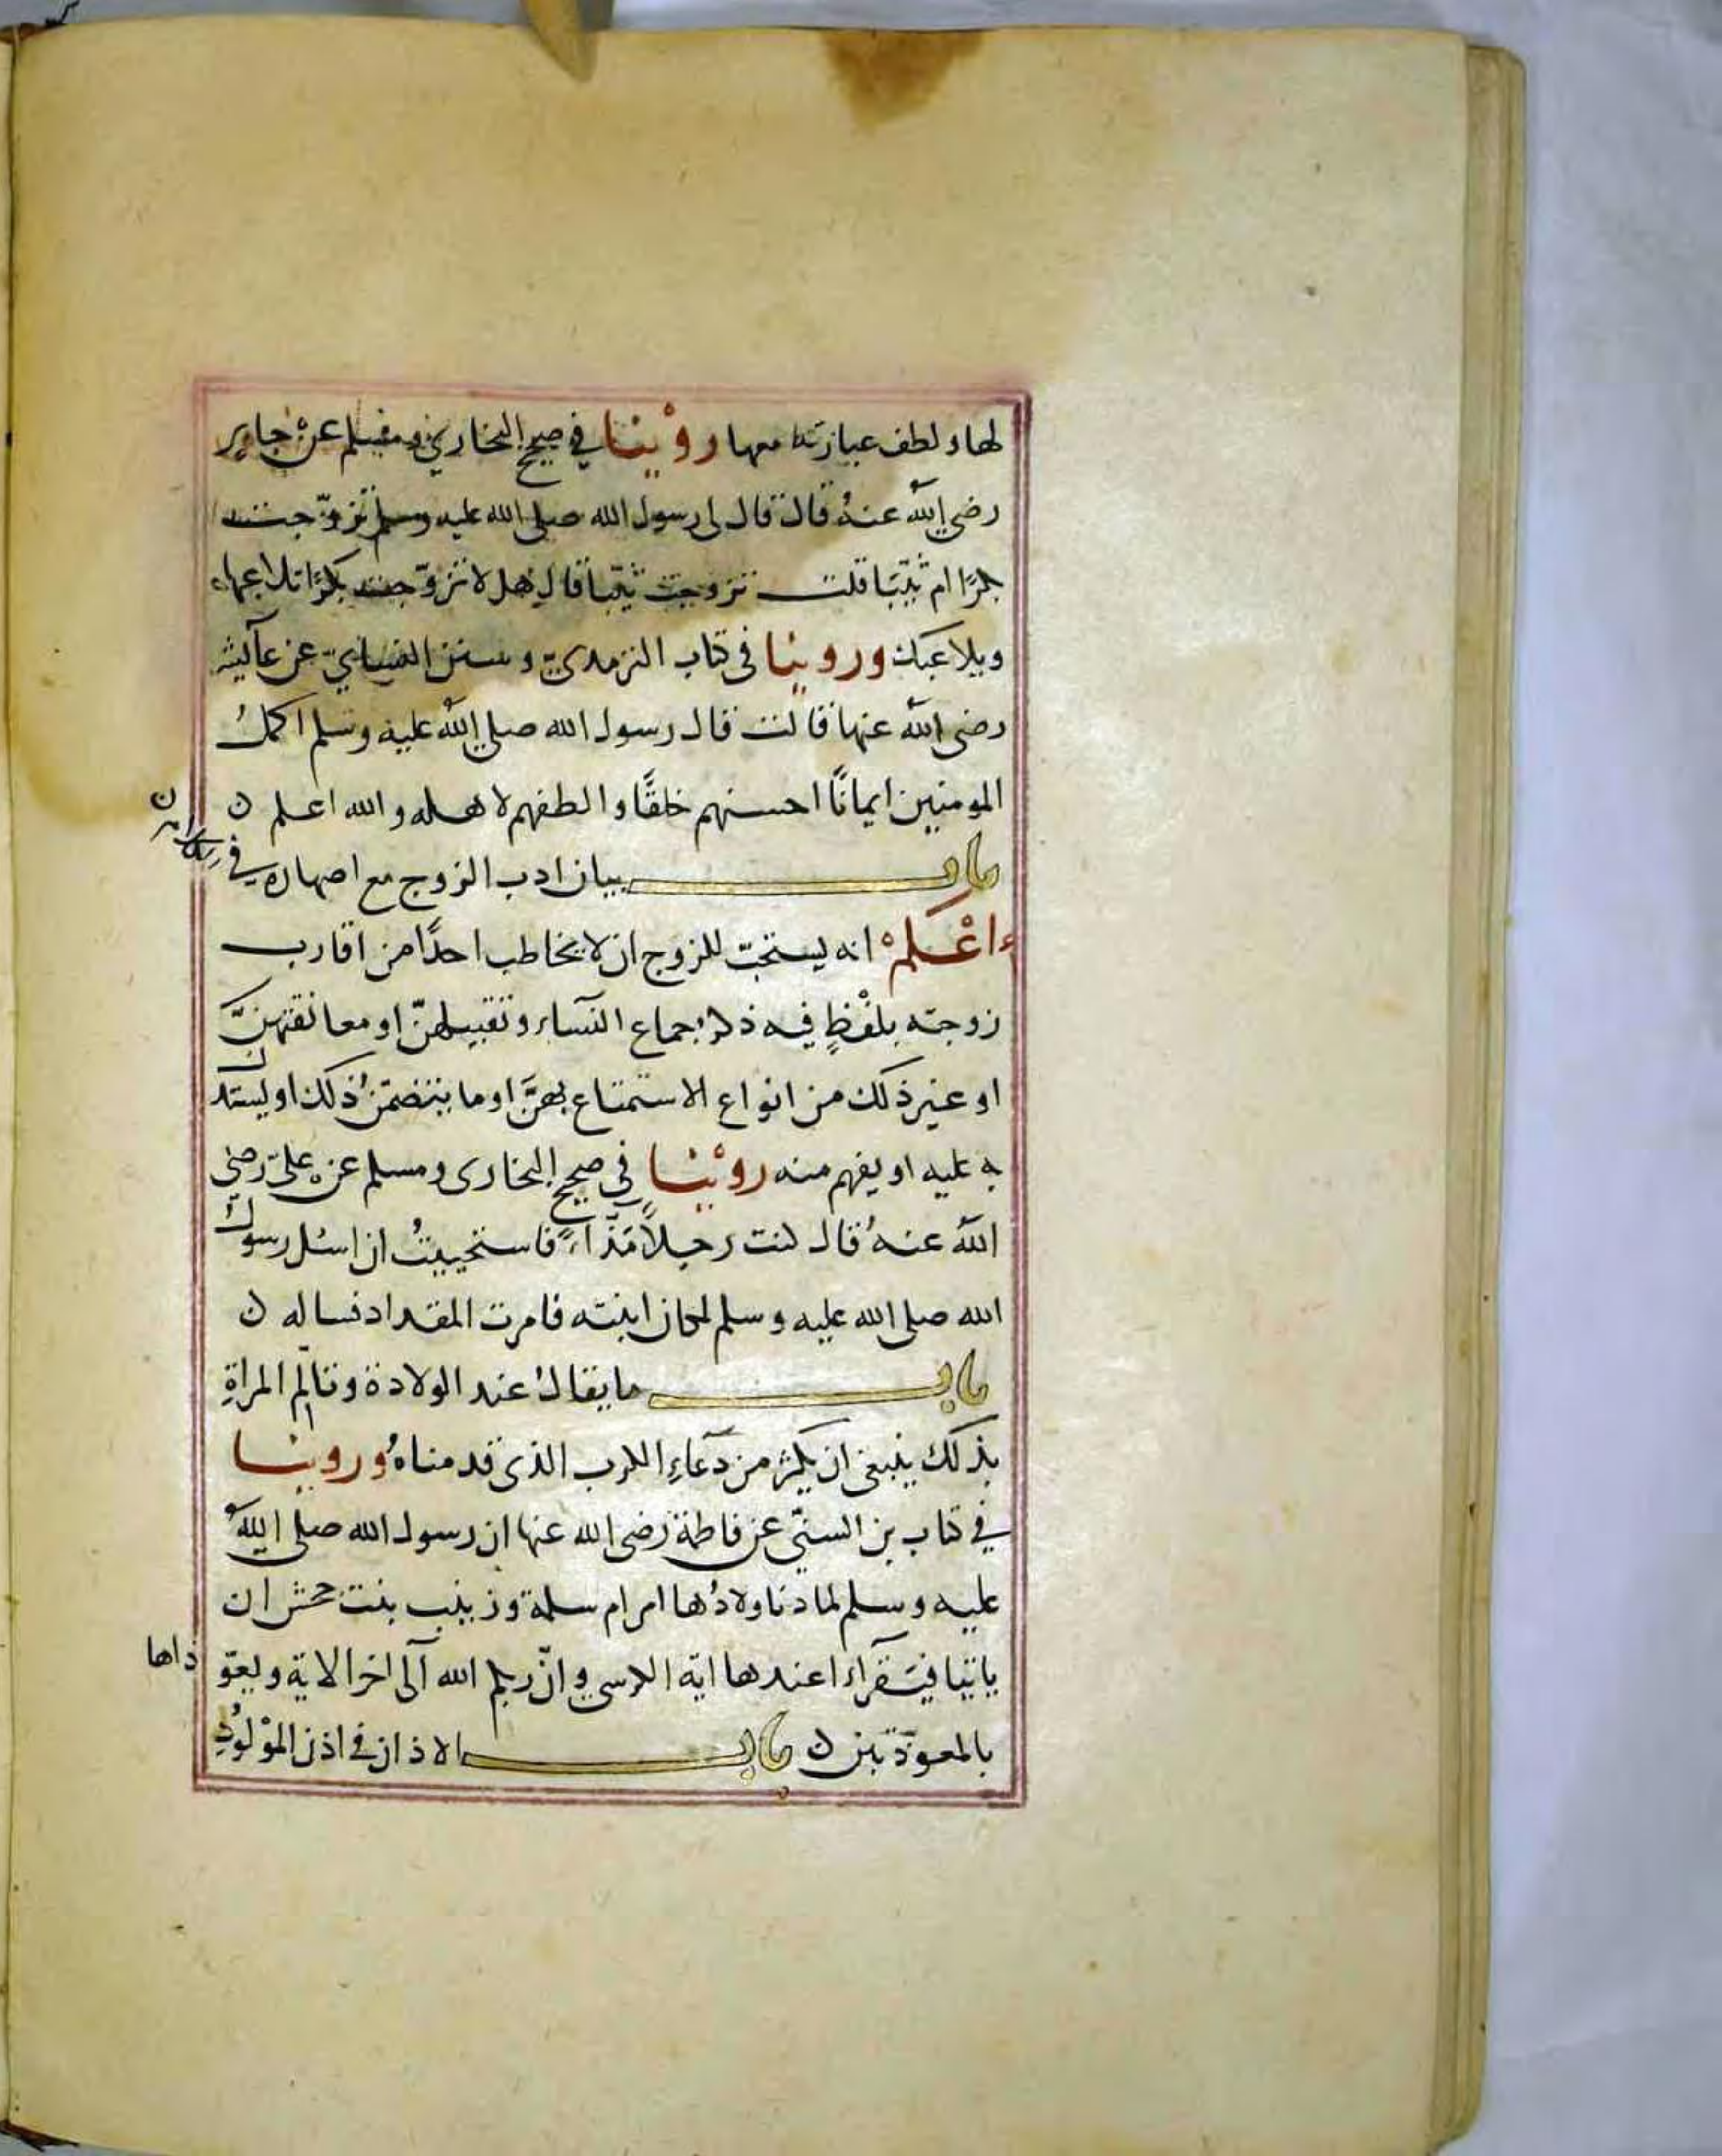 لها ولطف عبارته معها روْينا في صحيح البخاري ومسلم عن جابر
رضي الله عنهُ قال قال لي رسول الله صلى الله عليه وسلم تزوّجت
بكرًا ام ثيّبًا قلت تزوجت ثيّبا قال هلا تزوّجت بكرًا تلاعبها
ويلاعبك وروينا في كتاب الترمدي وسنن النسايّ عن عآيشة
رضي الله عنها قالت قال رسول الله صلى الله عليه وسلم اكملُ
المومنين ايمانًا احسنهم خلقًا والطفهم لاهله والله اعلم ن
باب بيان ادب الزوج مع اصهاره في
اعْلمْ انه يستحبّ للزوج ان لا يخاطب احدًا من اقارب
زوجته بلفْظٍ فيه ذكر جماع النسآء وتقبيلهنّ او معانقتهنَّ
او غير ذلك من انواع الاستمتاع بهنَّ او ما يتضمّنُ ذلك او يستدل
به عليه او يفهم منه روْينا في صحيح البخارى ومسلم عن علىّ رضي
الله عنهُ قال كنت رجلاً مَذّاءً فاستحييتُ ان اسئل رسول
الله صلى الله عليه وسلم لمكان ابنته فامرت المقداد فساله ن
باب ما يقالُ عند الولادة وتالم المراةِ
بذلك ينبغي ان يكثر من دعآءِ الكرب الذى قدمناهُ وروينا
في كتاب بن السنّي عن فاطمة رضي الله عنها ان رسول الله صلى اللهُ
عليه وسلم لما دنا ولادُها امر ام سلمة وزينب بنت جحش ان
ياتيا فيقرأا عندها اية الكرسي وانّ ربكم الله آلى اخر الاية ويعوّ ذاها
بالمعوّذتين ن باب الاذان في اذن الموْلوُدِ